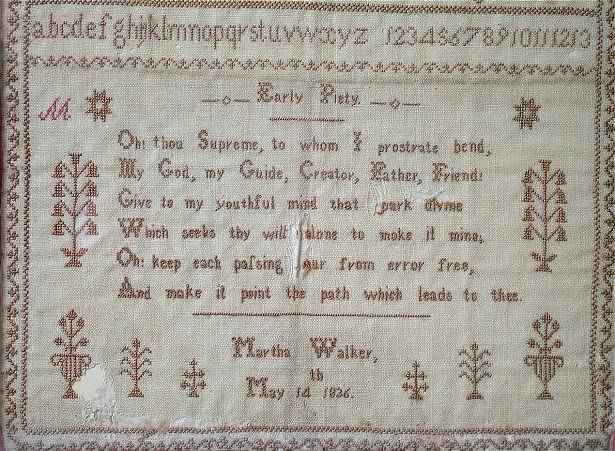 abcdefghijklmnopqrstuvwxyz 12345678910111213
Early Piety.
M
Oh! thou Supreme, to whom I prostrate bend,
My God, my Guide, Creator, Father, Friend!
Give to my youthful mind that divine
Which seeks thy will alone to make it mine,
Oh! keep each paſsing from error free,
And make it point the path which leads to thee.
Martha Walker,
th
May 14 1836.